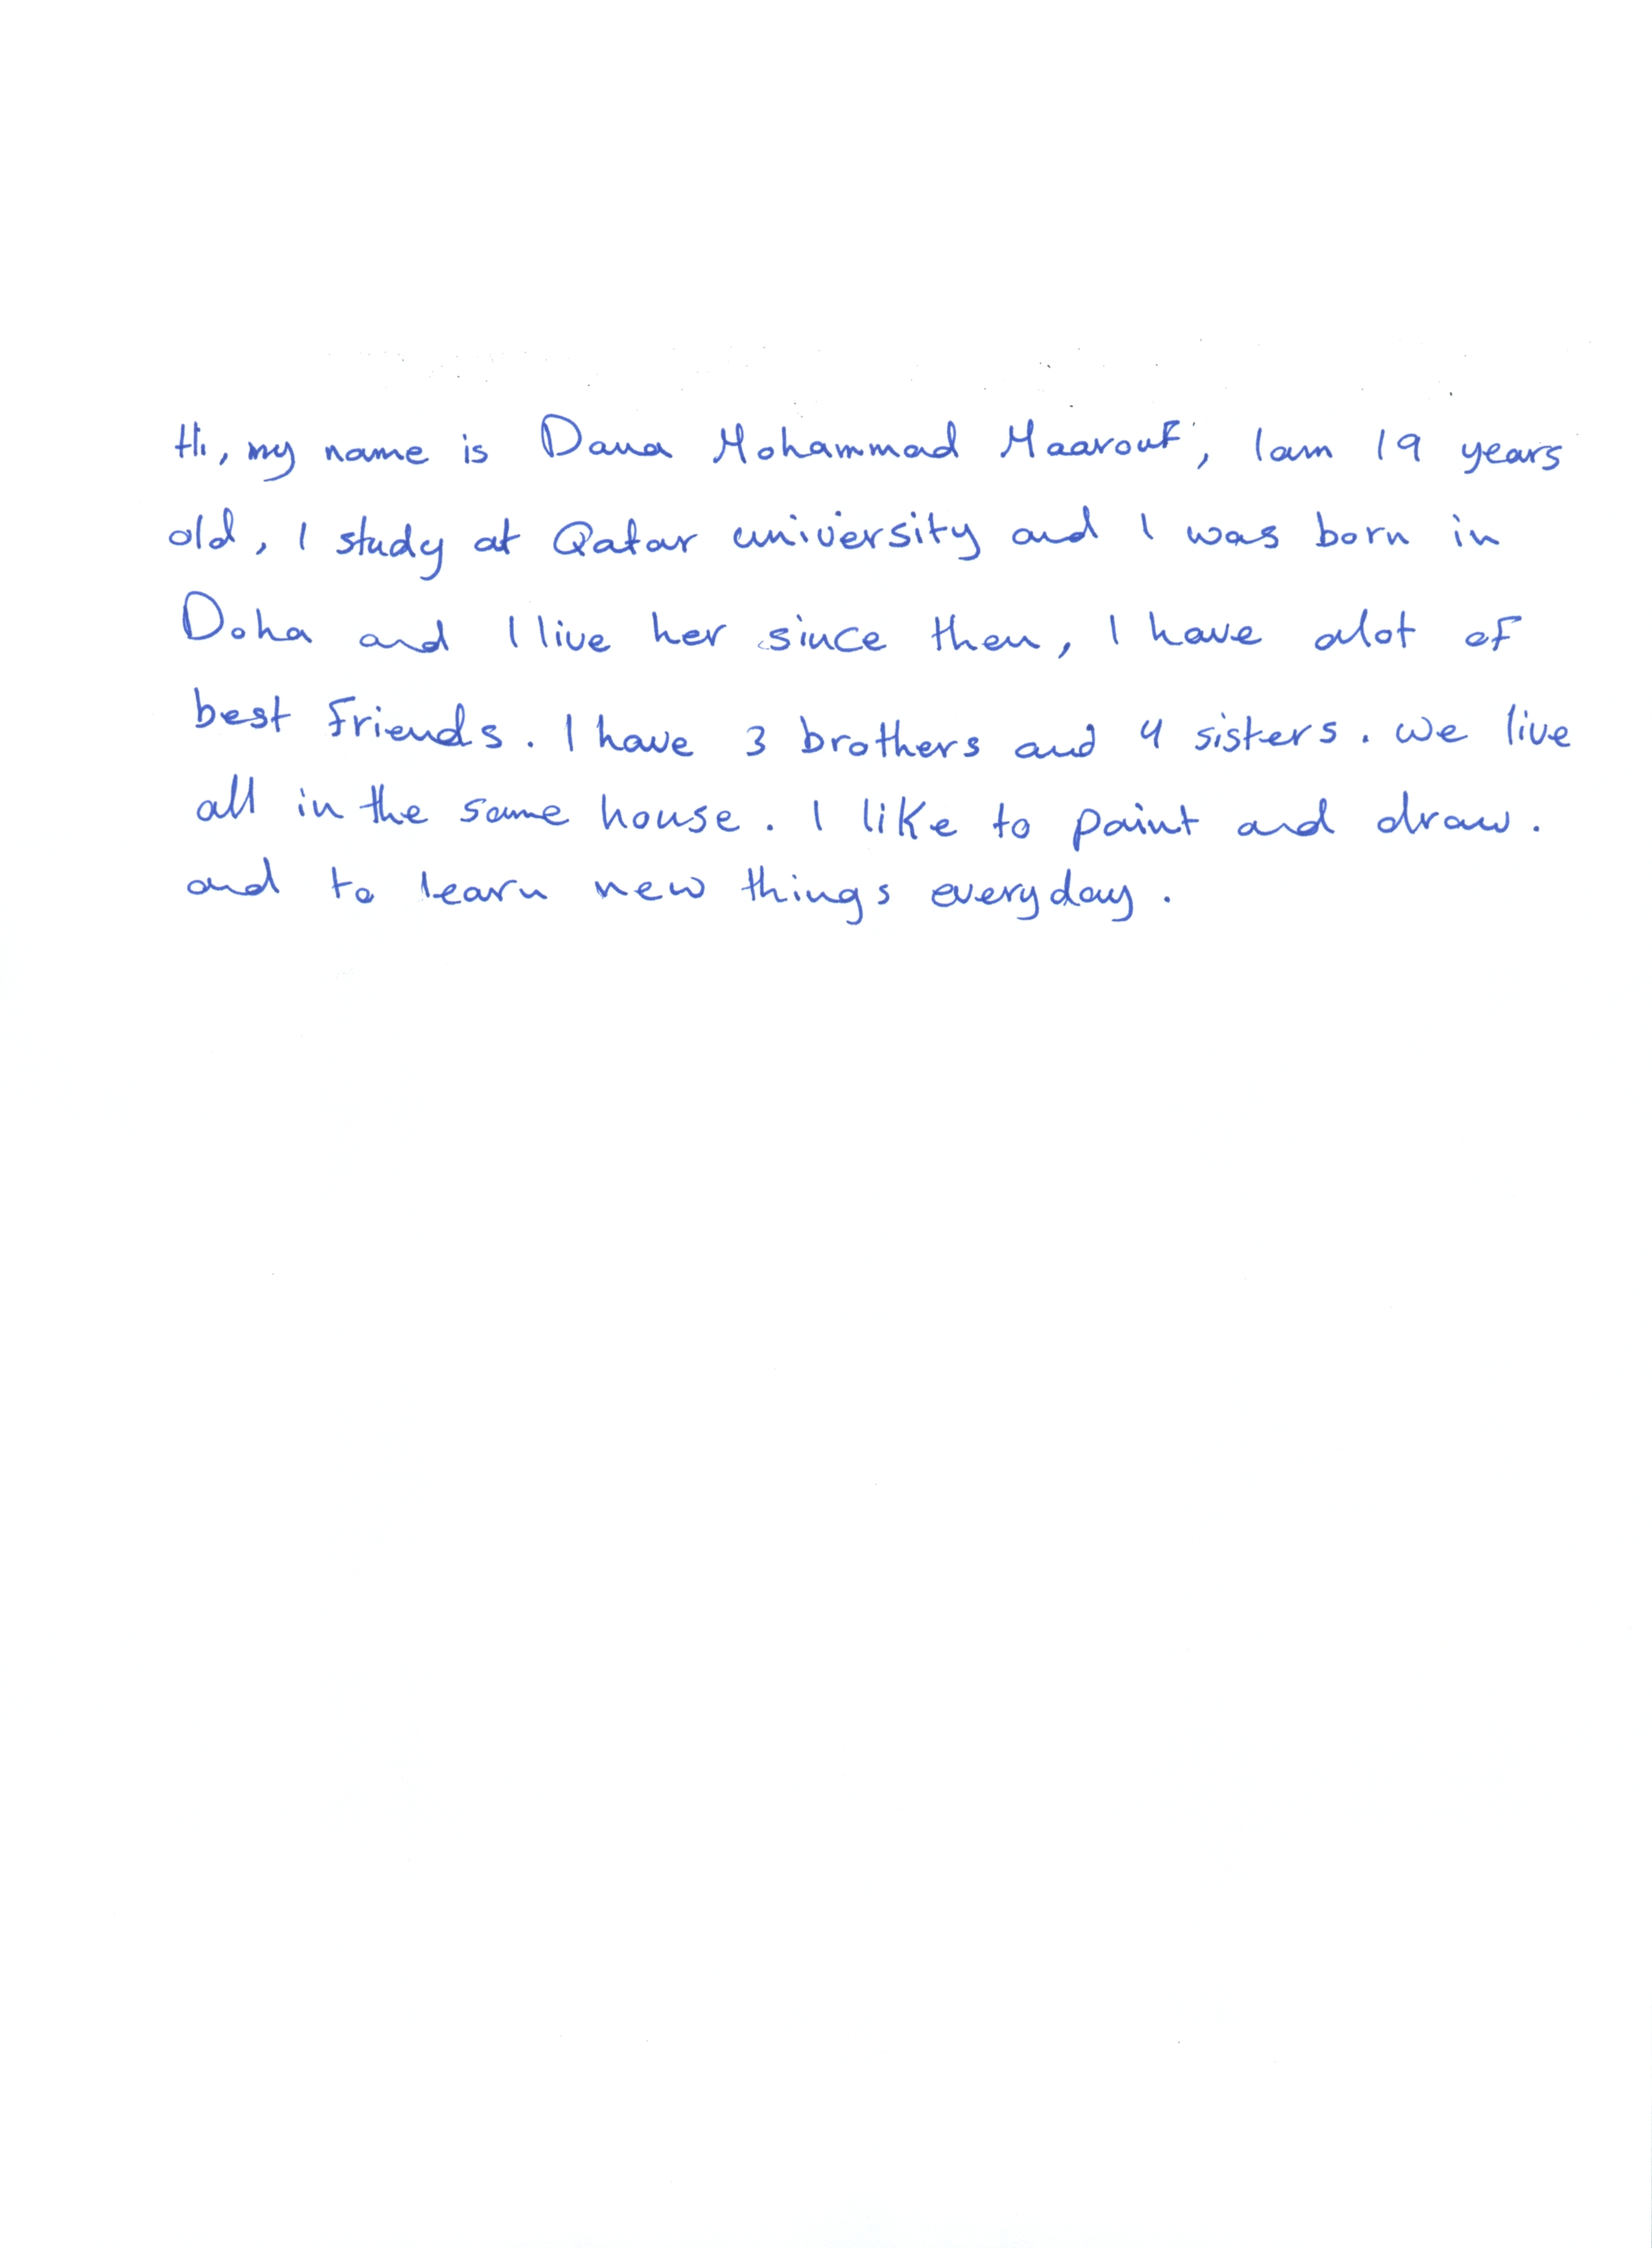 Hi, my name is Dana Mohammad Maarouf, I am 19 years
old, I study at Qatar university and I was born in
Doha and I live her since then, I have alot of
best friends. I have 3 brothers and 4 sisters. we live
all in the same house. I like to paint and draw.
and to learn new things everyday.